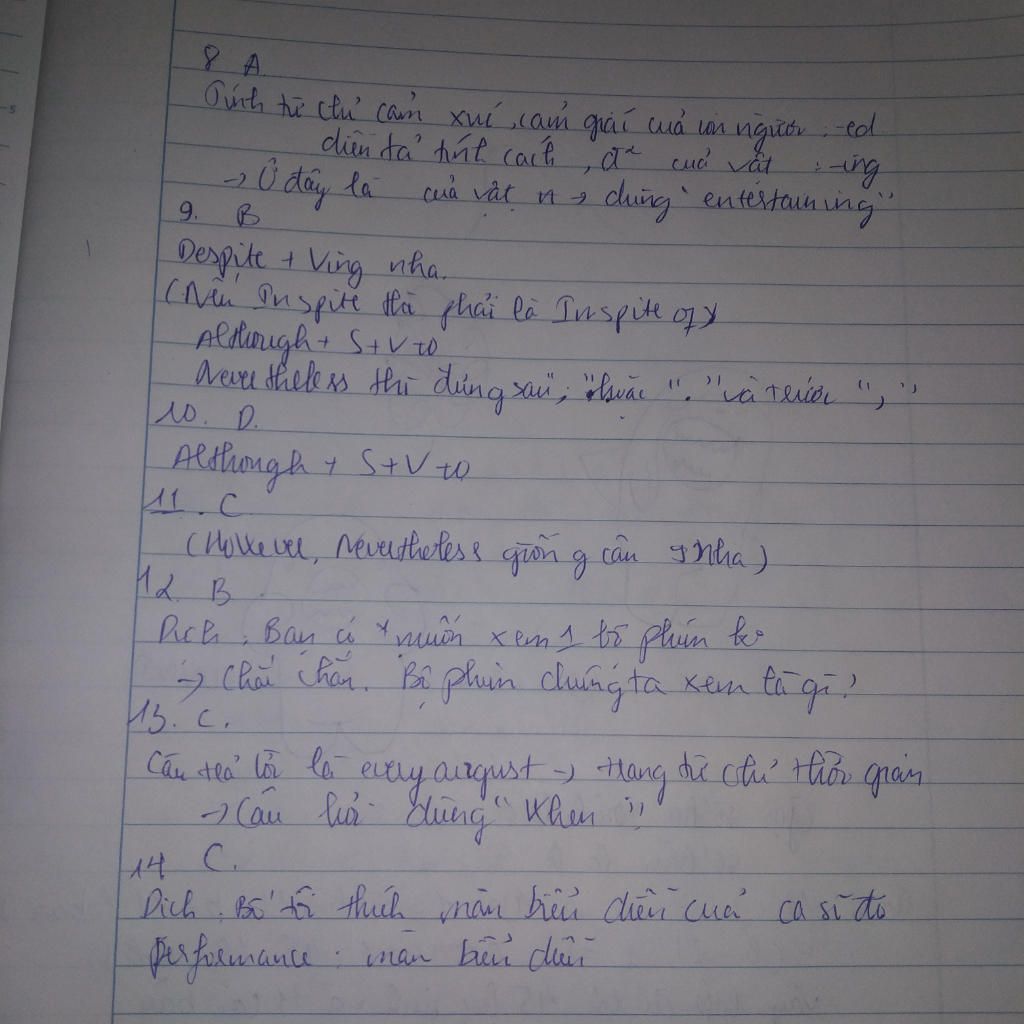 8 A.
Tính từ chỉ cảm xúc, cảm giác của con người : -ed
diễn tả tính cách, đ² của vật : -ing
→ Ở đây là của vật → dùng "entertaining"
9. B
Despite + Ving nha.
(Nếu Inspite thì phải là Inspite of)
Although + S+V+O
Nevertheless thì đứng sau ";" hoặc "." và trước ","
10. D.
Although + S+V+O
11. C
(However, Nevertheless giống câu 9 nha)
12. B
Dịch: Bạn có muốn xem 1 bộ phim ko
→ Chắc chắn. Bộ phim chúng ta xem là gì?
13. C.
Câu trả lời là every august → trạng từ chỉ thời gian
→ Câu hỏi dùng "When"
14 C.
Dịch: Bố tôi thích màn biểu diễn của ca sĩ đó
Performance: màn biểu diễn